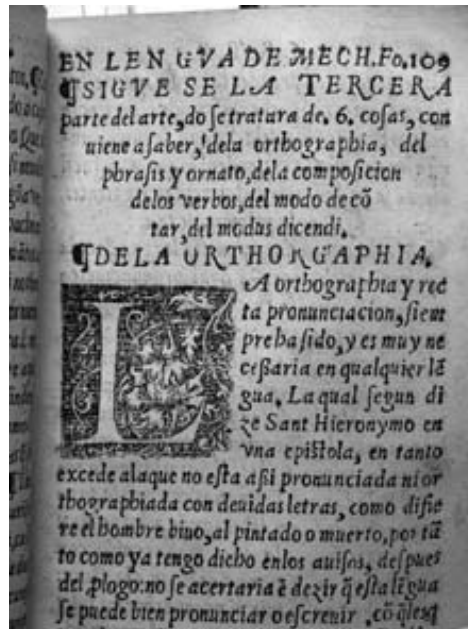 EN LENGVA DE MECH. Fo. 109
¶SIGVE SE LA TERCERA
parte del arte, do se tratara de. 6. cosas, con
uiene a saber, dela orthographia, del
phrasis y ornato, dela composicion
delos verbos, del modo de cõ
tar, del modus dicendi.
¶DE LA URTHORGAPHIA.
LA orthographia y rec
ta pronunciacion, siem
pre ha sido, y es muy ne
cessaria en qualquier lẽ
gua, La qual segun di
ze Sant Hieronymo en
vna epistola, en tanto
excede ala que no esta assi pronunciada ni or
thographiada con deuidas letras, como difie
re el hombre biuo, al pintado o muerto, por tã
to como ya tengo dicho enlos auisos, despues
del plogo: no se acertaria ẽ dezir q̃ esta lẽgua
se puede bien pronunciar o escreuir, cõ